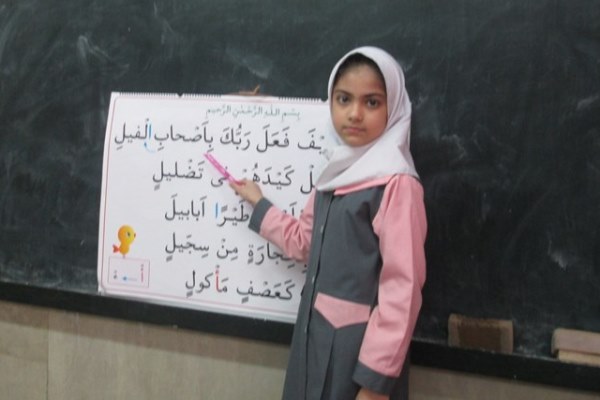 بِسْمِ اللّٰهِ الرَّحْمٰنِ الرَّحیمِ
فَعَلَ رَبُّكَ بِاَصْحابِ الْفیلِ
كَیْدَهُمْ تَضْلیلٍ
طَیْرًا اَبابیلَ
مِنْ سِجّیلٍ
كَعَصْفٍ مَأْكولٍ